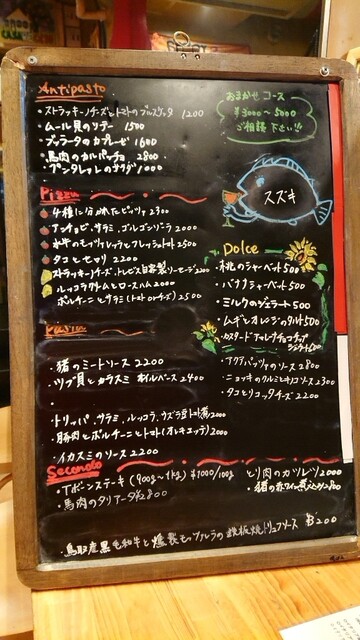 Antipasto
・ストラッキーノチーズとトマトのブルスケッタ 1200
・ムール貝のソテー 1500
・ブッラータのカプレーゼ 1600
・馬肉のカルパッチョ 2800
・プンタレッレのサラダ 1000
おまかせコース
¥3000〜5000
ご相談下さい!!
スズキ
Pizza
4種に分かれたピッツァ 2300
アンチョビ、サラミ、ゴルゴンゾーラ 2000
水牛のモッツァレッラとフレッシュトマト 2500
タコとセロリ 2200
ストラッキーノチーズ、トレビス自家製ソーセージ 2200
ルッコラクリームとロースハム 2000
ポルチーニとサラミ(トマトorチーズ) 2500
Dolce
・桃のシャーベット 500
・バナナシャーベット 500
・ミルクのジェラート 500
・ムギとオレンジのタルト 500
Pasta
・猪のミートソース 2200
・ツブ貝とカラスミ オイルベース 2400
・トリッパ、サラミ、ルッコラ、ウズラ豆トマト煮 2000
・豚肉とポルチーニとトマト(オレキエッテ) 2000
・イカスミのソース 2200
・アクアパッツァのソース 2800
・ニョッキのクルミとキノコソース 2300
・タコとリコッタチーズ 2200
Secondo
・Tボーンステーキ (900g〜1kg) ¥1000/100g
・馬肉のタリアータ ¥2800
・とり肉のカツレツ 2000
・猪の赤ワイン煮込み 2800
・鳥取産黒毛和牛と燻製モッツァレラの鉄板焼トリュフソース ¥3200